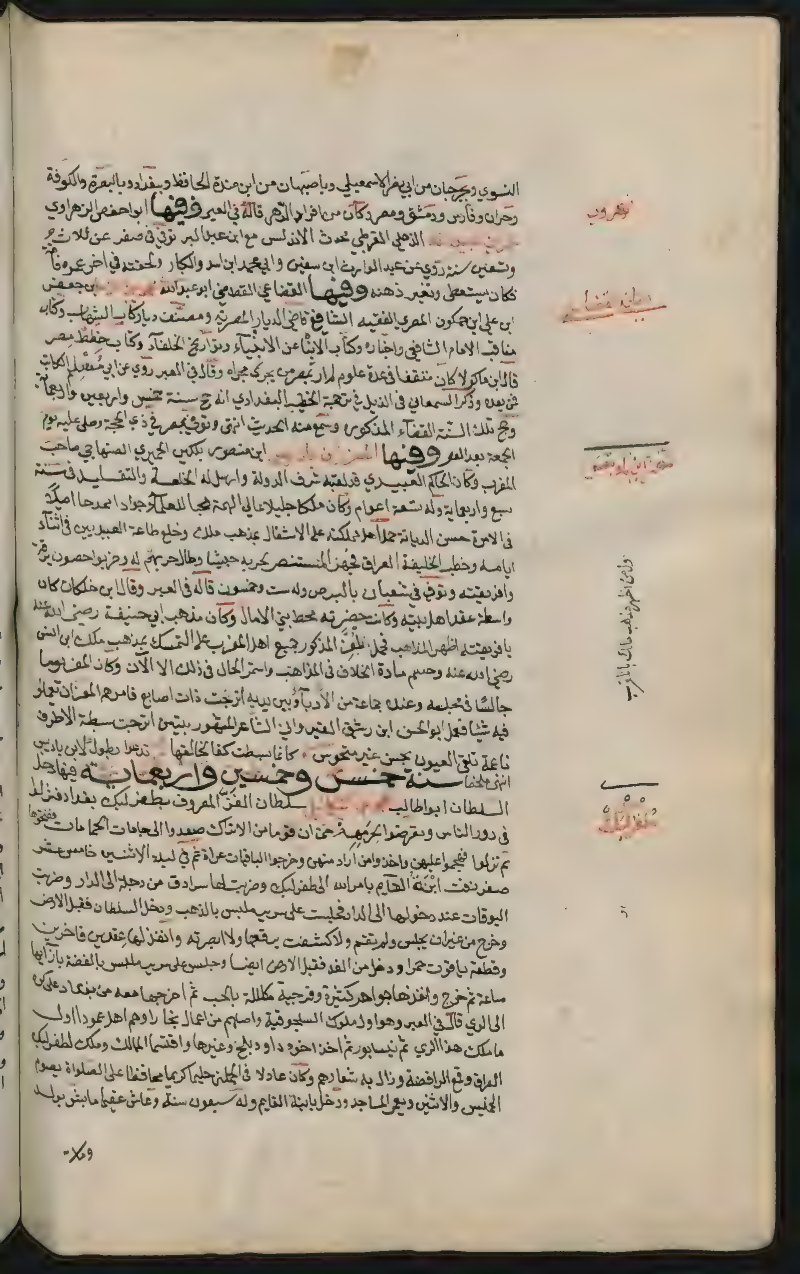 النسوي وبجرجان من ابي بكر الاسمعيلي وباصبهان من ابن مندة الحافظ وببغداد وبالبصرة والكوفة
وحران وفارس ودمشق ومصر وكان من افراد الدهر قاله في العبر وفيها ابو حفص الزهراوي
الذهلي القرطبي محدث الاندلس مع ابن عبد البر توفي في صفر عن ثلاث
وتسعين سنة روى عن عبد الوارث ابن سفين وابي محمد ابن اسد والكبار ولحقته في اخر عمره فاقة
فكان يستعطي وتغير ذهنه وفيها القضاعي القاضي ابو عبد الله بن جعفر
ابن علي ابن حكمون المصري الفقيه الشافعي قاضي الديار المصرية ومصنف كتاب الشهاب وكتاب
مناقب الامام الشافعي واخباره وكتاب الانباء عن الانبياء وتواريخ الخلفاء وكتاب خطط مصر
قال ابن ماكولا كان متفننا في عدة علوم لم ار بمصر من يجري مجراه وقال في العبر روى عن ابي مسلم الكاتب
فمن بعده وذكر السمعاني في الذيل في ترجمة الخطيب البغدادي انه حج سنة خمس واربعين واربعماية
وحج تلك السنة القضاعي المذكور وسمع منه الحديث انتهى وتوفي بمصر في ذي الحجة وصلي عليه يوم
الجمعة بعد العصر وفيها المعز بن باديس ابن منصور بن بلكين الحميري الصنهاجي صاحب
المغرب وكان الحاكم العبيدي قد لقبه شرف الدولة وارسل له الخلعة والتقليد في سنة
سبع واربعماية وله تسعة اعوام وكان ملكا جليلا عالي الهمة محبا للعلماء جوادا ممدحا اصيلا
في الامرة حسن الديانة حمل اهل مملكته على الاشتغال بمذهب ملك وخلع طاعة العبيديين في اثناء
ايامه وخطب لخليفة العراق فجهز المستنصر لحربه جيشا وطال حربهم له وخربوا حصون برقة
وافريقية وتوفي في شعبان بالبرص وله ست وخمسون قاله في العبر وقال ابن خلكان كان
واسطة عقد اهل بيته وكانت حضرته محط بني الامال وكان مذهب ابي حنيفة رضي الله عنه
بافريقية اظهر المذاهب فحمل المعز المذكور جميع اهل المغرب على التمسك بمذهب ملك ابن انس
رضي الله عنه وحسم مادة الخلاف في المذاهب واستمر الحال في ذلك الى الآن وكان المعز يوما
جالسا في مجلسه وعنده جماعة من الادباء وبين يديه اترجة ذات اصابع فامرهم المعز ان يعملوا
فيه شيئا فعمل ابو الحسن ابن رشيق القيرواني الشاعر المشهور بيتين اترجة سبطة الاطراف
ناعمة تلقى العيون بحسن غير منحوس كانما بسطت كفا لخالقها تدعوا بطول لابن باديس
انتهى ملخصا سنة خمس وخمسين واربعماية فيها دخل
السلطان ابو طالب سلطان الغز المعروف بطغرلبك بغداد فنزلوا
في دور الناس وتعرضوا لحريمهم حتى ان قوما من الاتراك صعدوا الى جامات الحمامات ففتحوها
ثم نزلوا فهجموا عليهن واخذوا من اراد منهن وخرجوا الباقيات عراة ثم في ليلة الاثنين خامس عشر
صفر زفت ابنة القايم بامر الله الى طغرلبك وضربت لها سرادق من دجلة الى الدار وضربت
البوقات عند دخولها الى الدار فجلست على سرير ملبس بالذهب ودخل السلطان فقبل الارض
وخرج من غير ان يجلس ولم تقم ولا كشفت برقعها ولا ابصرته وانفذ لها عقدين فاخرين
وقطعة ياقوت حمرا ودخل من الغد فقبل الارض ايضا وجلس على سرير ملبس بالفضة بازايها
ساعة ثم خرج وانفذ لها جواهر كثيرة وفرجية مكللة بالحب ثم اخرجها معه من بغداد على كره
الى الري قال في العبر وهو اول ملوك السلجوقية واصلهم من اعمال بخارا وهم اهل عمود اول
ما ملك هذا الري ثم نيسابور ثم اخذ اخوه داود بلخ وغيرها واقتسما الممالك وملك طغرلبك
العراق وقمع الرافضة وزال به شعارهم وكان عادلا في الجملة حليما كريما محافظا على الصلوات يصوم
الخميس والاثنين ويعمر المساجد ودخل بابنة القايم وله سبعون سنة وعاش عقيما ما بشر بولد
ومات
ابن باديس
ولمن اظهر مذهب مالك بالمغرب
طغرلبك